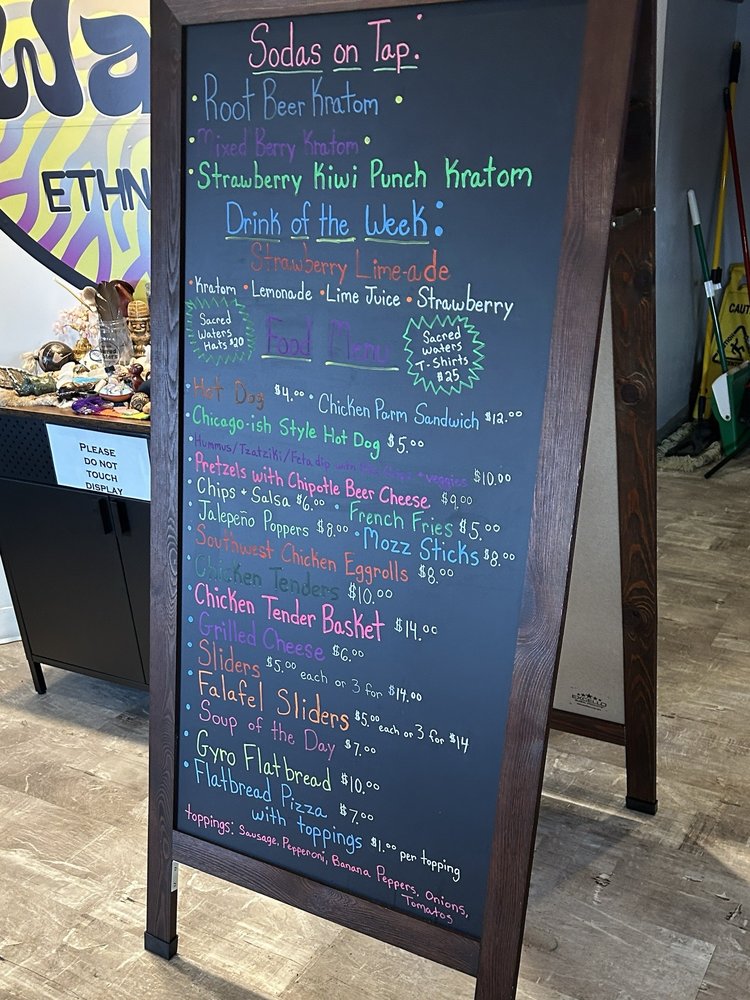 Wa
ETHN
PLEASE
DO NOT
TOUCH
DISPLAY
Sodas on Tap:
• Root Beer Kratom •
• Mixed Berry Kratom •
• Strawberry Kiwi Punch Kratom
Drink of the Week:
Strawberry Lime-ade
• Kratom • Lemonade • Lime Juice • Strawberry
Sacred
Waters
Hats $20
Food Menu
Sacred
Waters
T-Shirts
$25
• Hot Dog $4.00 • Chicken Parm Sandwich $12.00
• Chicago-ish Style Hot Dog $5.00
• Hummus/Tzatziki/Feta dip with Pita Chips + veggies $10.00
• Pretzels with Chipotle Beer Cheese $9.00
• Chips + Salsa $6.00 • French Fries $5.00
• Jalepeño Poppers $8.00 • Mozz Sticks $8.00
• Southwest Chicken Eggrolls $8.00
• Chicken Tenders $10.00
• Chicken Tender Basket $14.00
• Grilled Cheese $6.00
• Sliders $5.00 each or 3 for $14.00
• Falafel Sliders $5.00 each or 3 for $14
• Soup of the Day $7.00
• Gyro Flatbread $10.00
• Flatbread Pizza $7.00
with toppings $1.00 per topping
toppings: Sausage, Pepperoni, Banana Peppers, Onions,
Tomatos
CAUT
EXCELLO